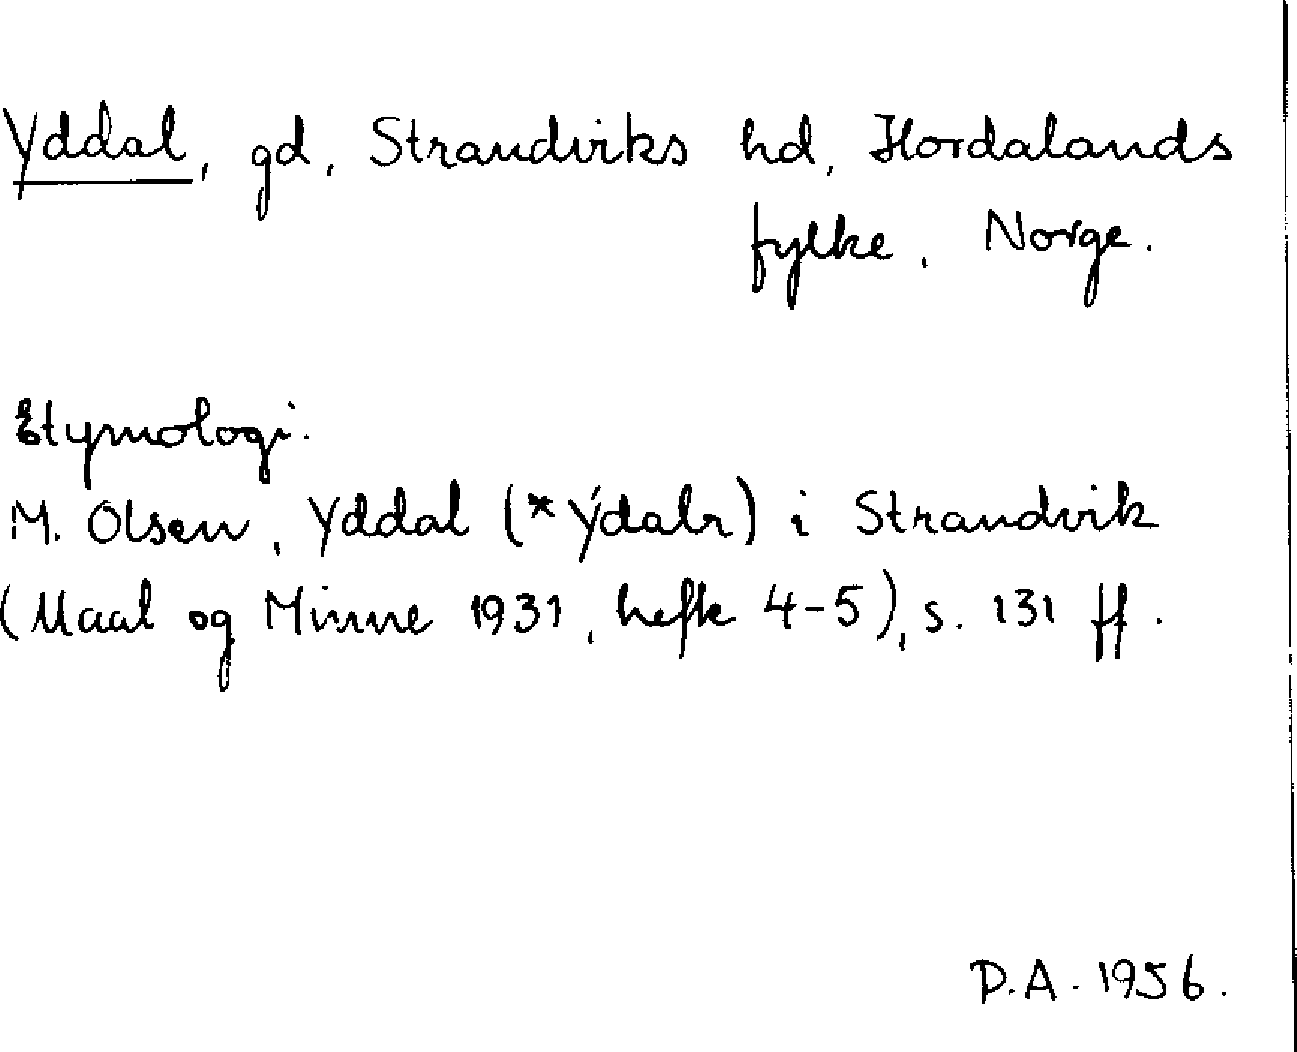 Yddal, gd, Strandviks hd, Hordalands
fylke, Norge.
Etymologi.
M. Olsen, Yddal (*Ýdalr) i Strandvik
(Maal og Minne 1931, hefte 4-5), s. 131 ff.
D.A. 1956.